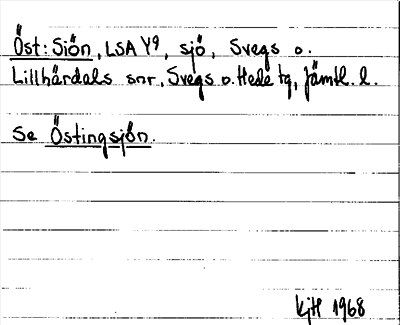 Öst: Siön, LSA Y9, sjö, Svegs o.
Lillhärdals snr, Svegs o. Hede tg, Jämtl. l.
Se Östingsjön.
KjH 1968